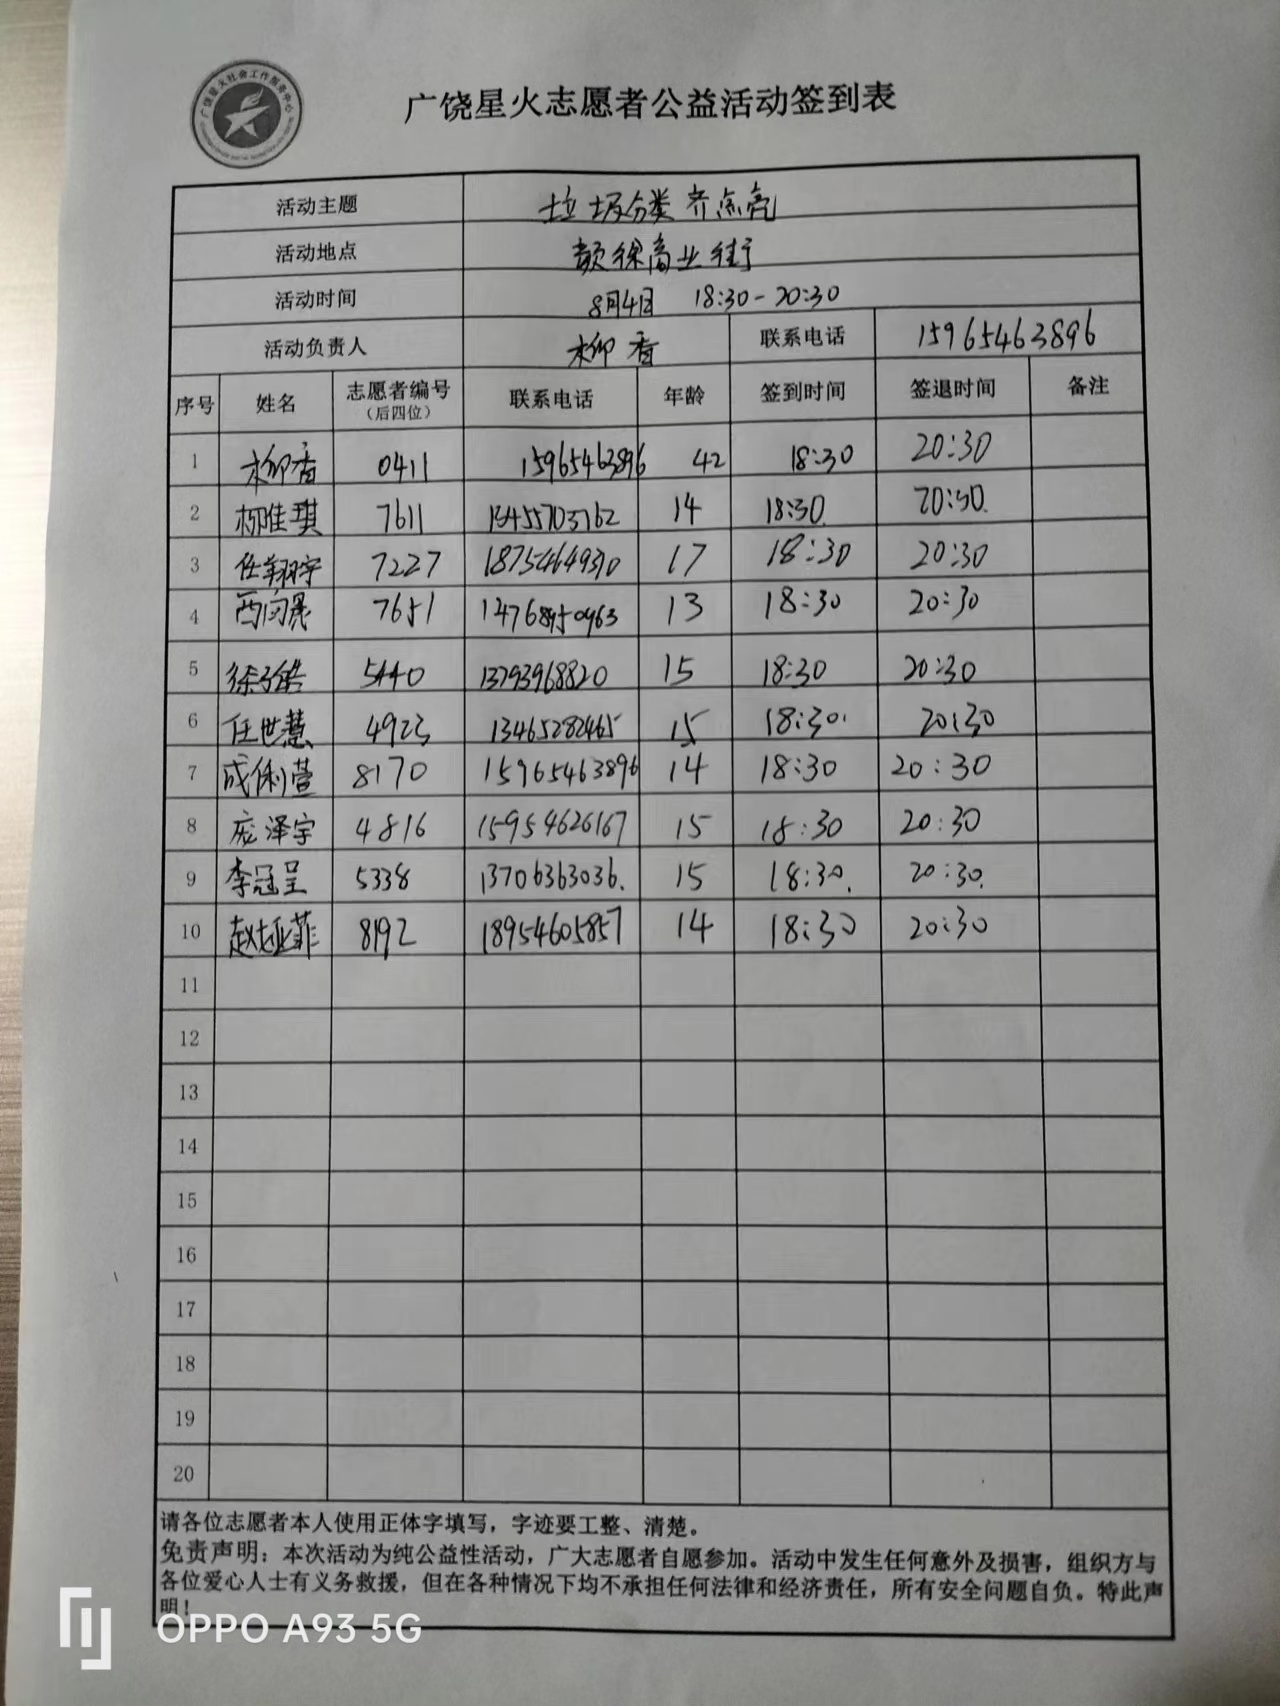 广饶星火社会工作服务中心
广饶星火志愿者公益活动签到表
活动主题 垃圾分类齐点亮
活动地点 颜徐商业街
活动时间 8月4日 18:30-20:30
活动负责人 柳香 联系电话 15965463896
序号 姓名 志愿者编号 联系电话 年龄 签到时间 签退时间 备注
(后四位)
1 柳香 0411 15965463896 42 18:30 20:30
2 柳佳琪 7611 14 18:30 20:30
3 任翔宇 7227 17 18:30 20:30
4 7651 13 18:30 20:30
5 5440 13793968820 15 18:30 20:30
6 任世慧 4923 13465282465 15 18:30 20:30
7 成俐萱 8170 15965463896 14 18:30 20:30
8 庞泽宇 4816 15954626167 15 18:30 20:30
9 李冠呈 5338 13706363036. 15 18:30. 20:30.
10 赵亚菲 8192 18954605857 14 18:30 20:30
11
12
13
14
15
16
17
18
19
20
请各位志愿者本人使用正体字填写，字迹要工整、清楚。
免责声明：本次活动为纯公益性活动，广大志愿者自愿参加。活动中发生任何意外及损害，组织方与
各位爱心人士有义务救援，但在各种情况下均不承担任何法律和经济责任，所有安全问题自负。特此声
明！
OPPO A93 5G